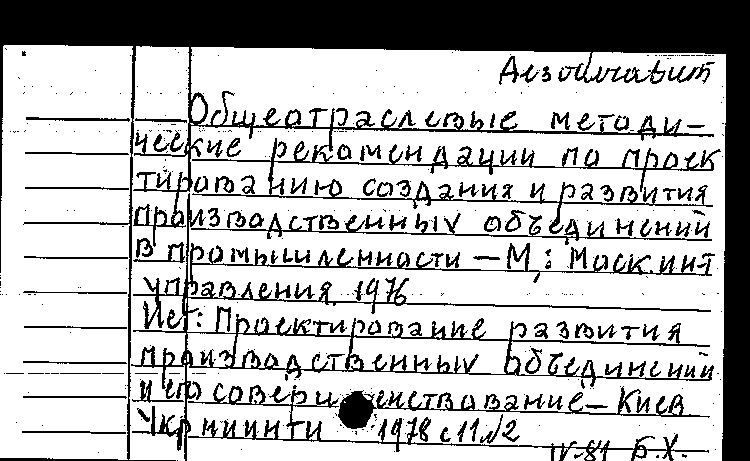 Общеотраслевые методи-
ческие рекомендации по проек
тированию создания и развития
производственных объединений
в промышленности — М,: Моск. инт
управления, 1976
Ист: Проектирование развития
производственных объединений
и его совершенствование — Киев
УкрНИИНТИ 1978 с 11 №2
IV-81 Б.Х.